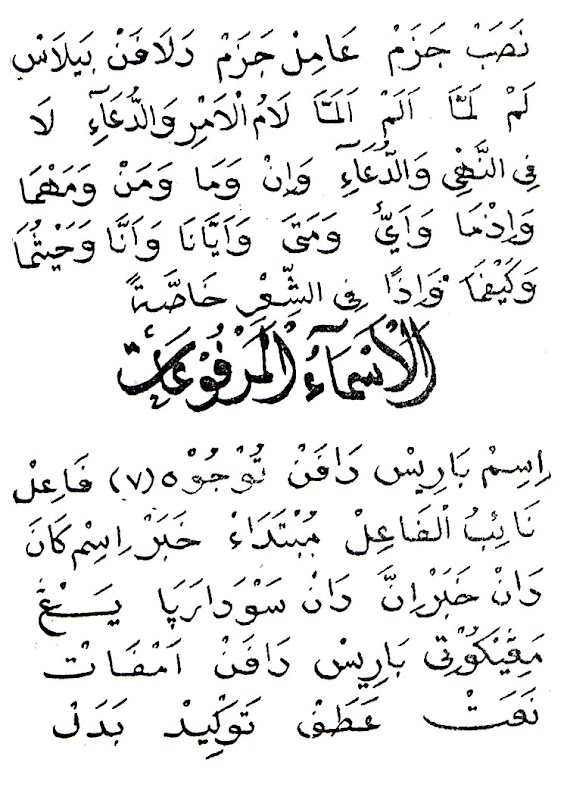 نَصَبْ جَزَمْ عَامِلْ جَزَمْ دَلَافَنْ بَيلَاسْ
لَمْ لَمَّا اَلَمْ اَلَمَّا لَامُ الْاَمْرِ وَالدُّعَآءِ لَا
فِى النَّهْىِ وَالدُّعَآءِ وَاِنْ وَمَا وَمَنْ وَمَهْمَا
وَاِذْمَا وَاَيٌّ وَمَتَى وَاَيَّانَا وَاَنَّا وَحَيْثُمَا
وَكَيْفَمَا وَاِذًا فِى الشِّعْرِ خَاصَّةً
الْاَسْمَآءُ الْمَرْفُوْعَاتُ
اِسِمْ بَارِيسْ دَافَنْ تُوْجُوْه (٧) فَاعِلْ
نَائِبُ الْفَاعِلْ مُبْتَدَاءْ خَبَرْ اِسْم كَانَ
دَانْ خَبَرْ اِنَّ دَانْ سَوْدَارَپَا يَــڠْ
مَڠِيْكُوْتِى بَارِيسْ دَافَنْ اَمْفَاتْ
نَعَتْ عَطَفْ تَوْكِيدْ بَدَلْ